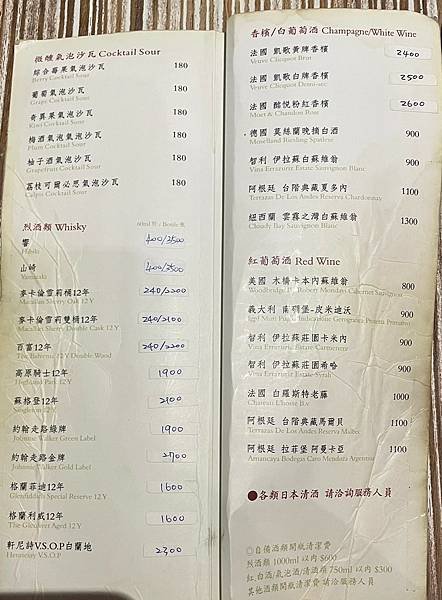 微醺氣泡沙瓦 Cocktail Sour
綜合莓果氣泡沙瓦 180
Berry Cocktail Sour
葡萄氣泡沙瓦 180
Grape Cocktail Sour
奇異果氣泡沙瓦 180
Kiwi Cocktail Sour
梅酒氣泡氣泡沙瓦 180
Plum Cocktail Sour
柚子酒氣泡沙瓦 180
Grapefruit Cocktail Sour
荔枝可爾必思氣泡沙瓦 180
Calpis Cocktail Sour
烈酒類 Whisky 60ml 杯 / Bottle 瓶
響 400/3500
Hibiki
山崎 400/3500
Yamazaki
麥卡倫雪莉桶12年 240/2200
Macallan Sherry Oak 12 Y
麥卡倫雪莉雙桶12年 240/2100
Macallan Sherry Double Cask 12 Y
百富12年 240/2200
The Balvenie 12 Y Double Wood
高原騎士12年 1900
Highland Park 12 Y
蘇格登12年 2100
Singleton 12 Y
約翰走路綠牌 1900
Johnnie Walker Green Label
約翰走路金牌 2700
Johnnie Walker Gold Label
格蘭菲迪12年 1600
Glenfiddich Special Reserve 12 Y
格蘭利威12年 1600
The Glenlivet Aged 12 Y
軒尼詩V.S.O.P白蘭地 2300
Hennessy V.S.O.P
香檳/白葡萄酒 Champagne/White Wine
法國 凱歌黃牌香檳 2400
Veuve Clicquot Brut
法國 凱歌白牌香檳 2500
Veuve Clicquot Demi-sec
法國 酩悅粉紅香檳 2600
Moet & Chandon Rose
德國 莫絲蘭晚摘白酒 900
Moselland Riesling Spatlese
智利 伊拉蘇白蘇維翁 900
Vina Errazuriz Estate Sauvignon Blanc
阿根廷 台階典藏夏多內 1100
Terrazas De Los Andes Reserva Chardonnay
紐西蘭 雲霧之灣白蘇維翁 1300
Cloudy Bay Sauvignon Blanc
紅葡萄酒 Red Wine
美國 木橋卡本內蘇維翁 800
Woodbridge By Robert Mondavi Cabernet Sauvignon
義大利 南碉堡-皮米迪沃 900
Puglia
智利 伊拉蘇莊園卡米內 900
Vina Errazuriz Estate Carmenere
智利 伊拉蘇莊園希哈 900
Vina Errazuriz Estate Syrah
法國 白羅斯特老藤 1000
Chateau L'hoste
阿根廷 台階典藏馬爾貝 1100
Terrazas De Los Andes Reserva Malbec
阿根廷 拉菲堡 阿曼卡亞 1100
Amancaya Bodegas Caro Mendoza Argentina
●各類日本清酒 請洽詢服務人員
◎自備酒類開瓶清潔費
烈酒類 1000ml 以內 $600
紅.白酒/氣泡酒/清酒類 750ml 以內 $300
其他酒類開瓶清潔費 請洽服務人員